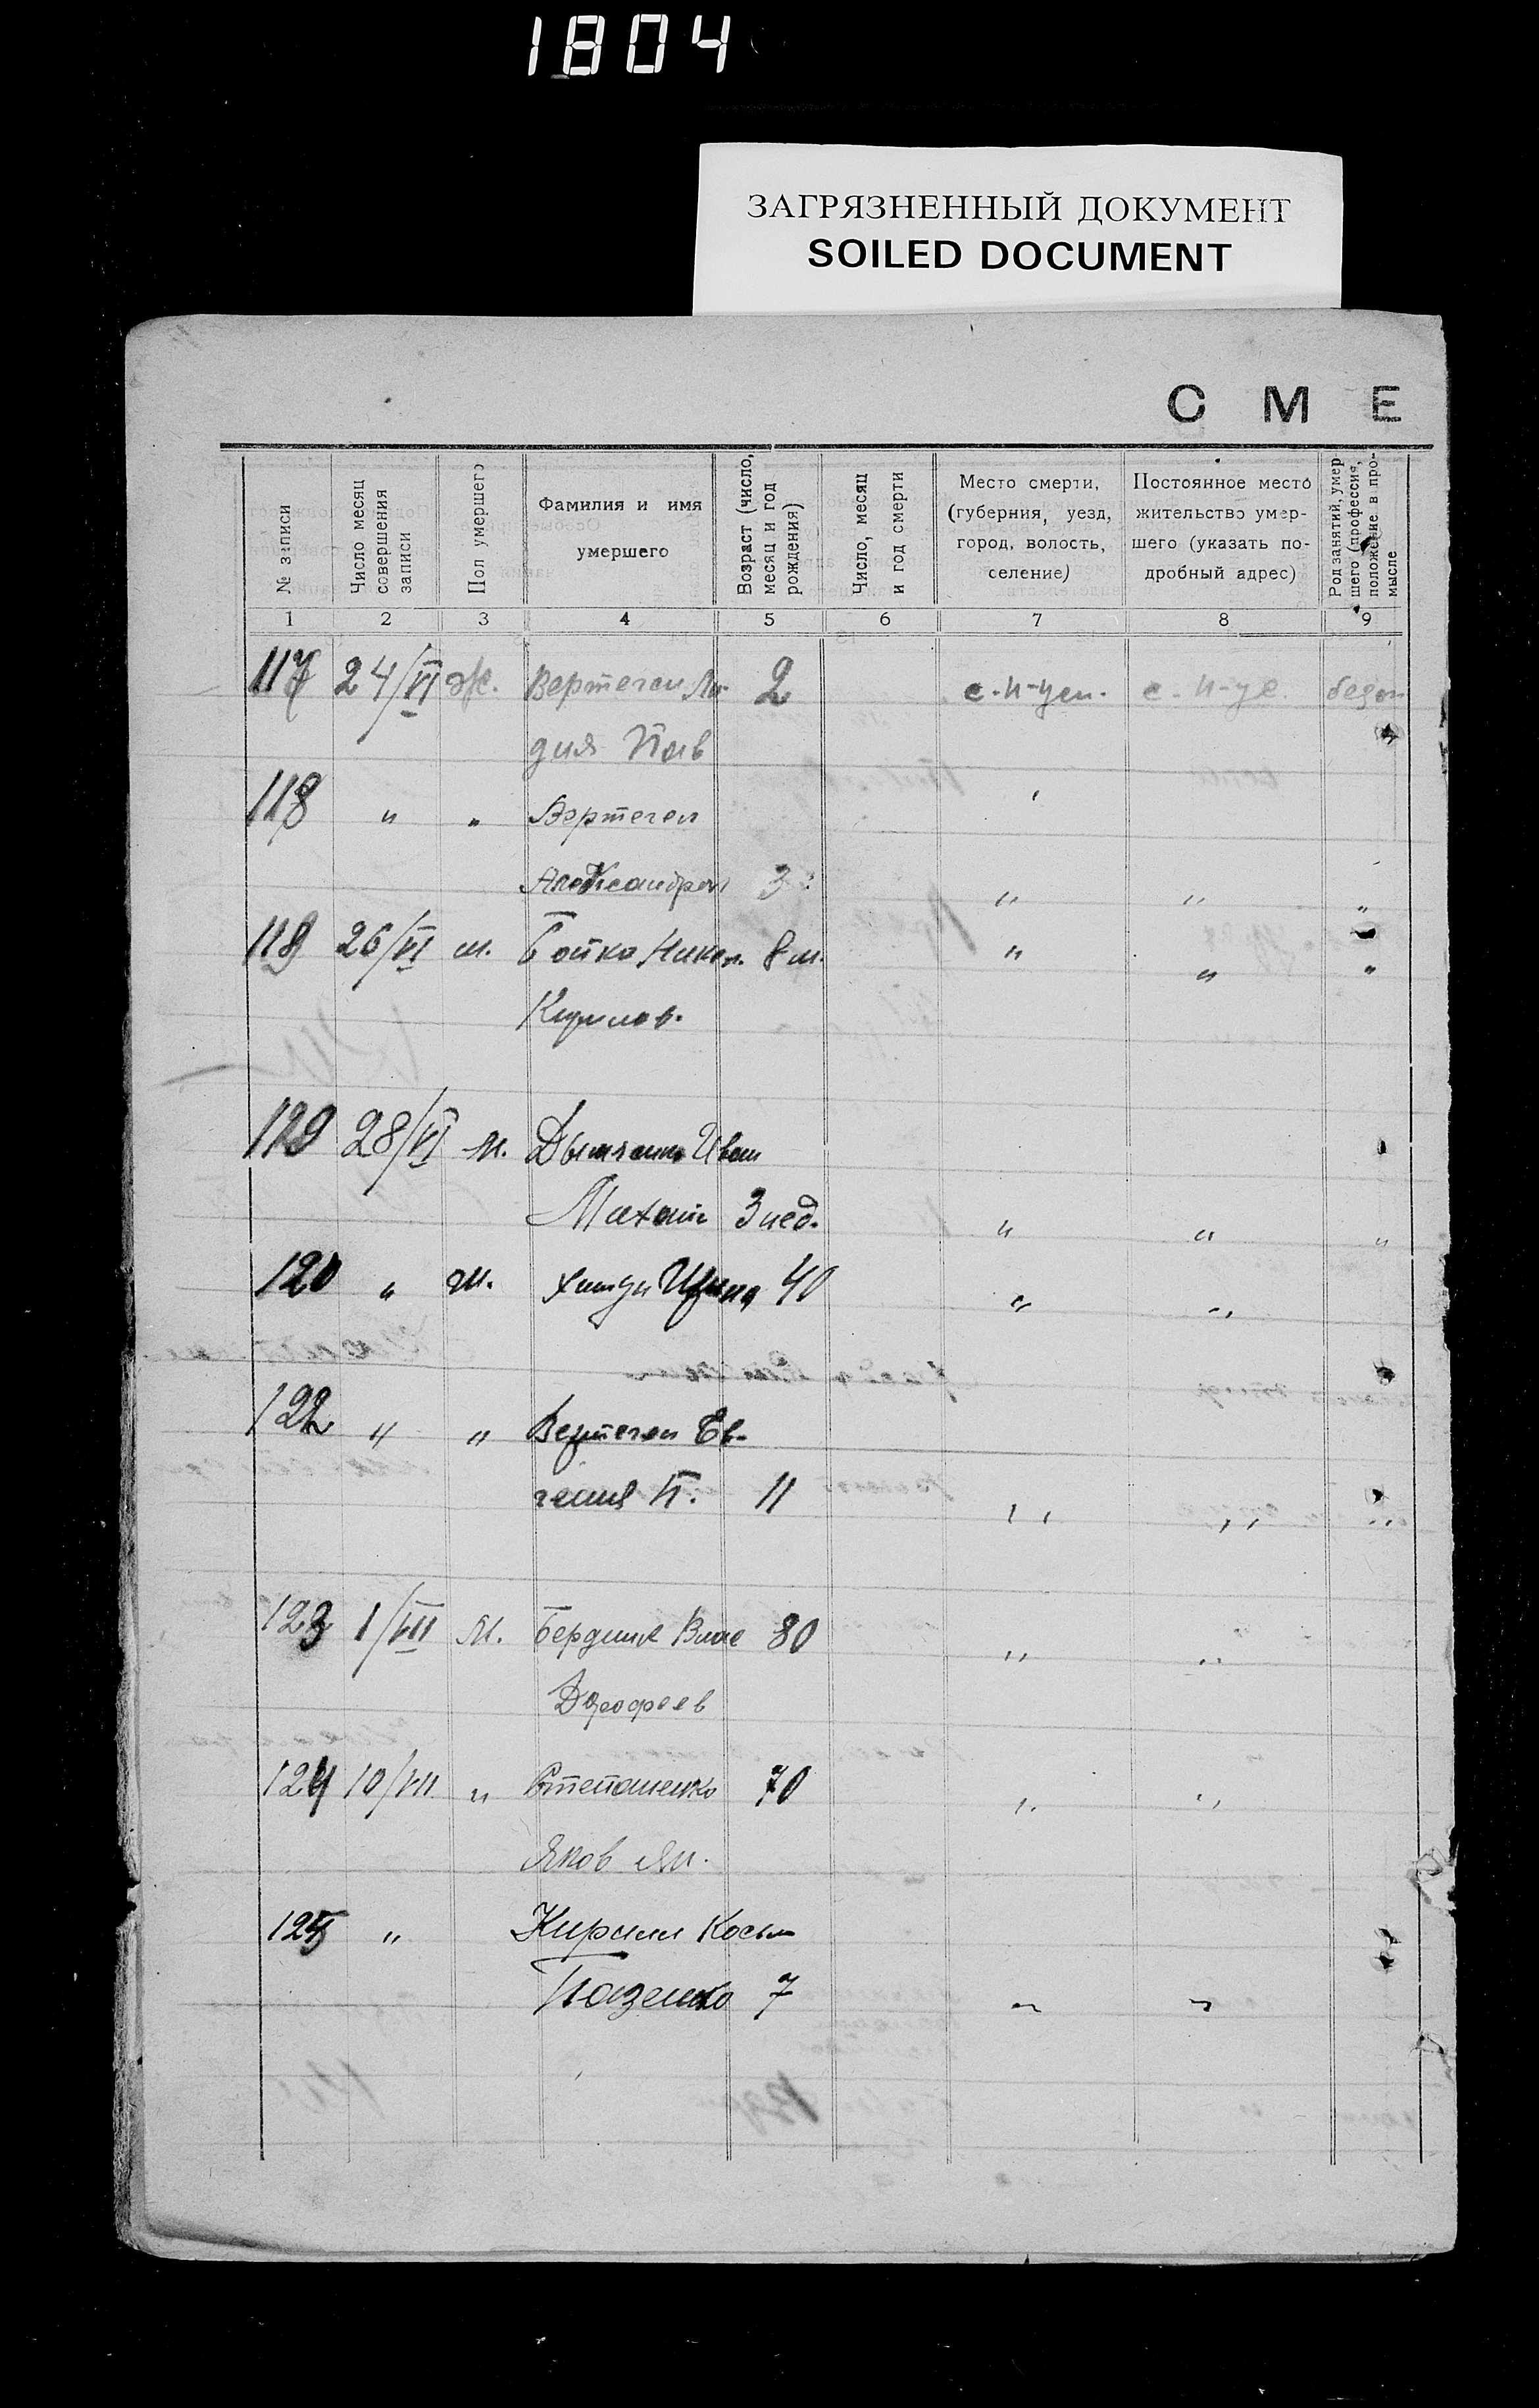 1804
ЗАГРЯЗНЕННЫЙ ДОКУМЕНТ
SOILED DOCUMENT
С М Е
№ записи
Число месяц совершения записи
Пол умершего
Фамилия и имя умершего
Возраст (число, месяц и год рождения)
Число, месяц и год смерти
Место смерти, (губерния, уезд, город, волость, селение)
Постоянное место жительство умершего (указать подробный адрес)
Род занятий, умершего (профессия, положение в промысле
1 2 3 4 5 6 7 8 9
117 24/VI ж. Вертегел Ли- 2
дия
118 " " Вертегел
Александра 3 " " "
119 26/VI м. Бойко Никол. 8 м. " " "
Кирилов.
28/VI м. Иван
3 нед. " " "
" 40 " "
122 " " Вертегел Ев-
гения П. 11 " " "
123 1/VII м. Бердник Влас 80 " "
Дорофеев
124 10/VII " Степаненко 70 " "
Яков
125 " Кирилл Косьм
Пазенко 7 " "